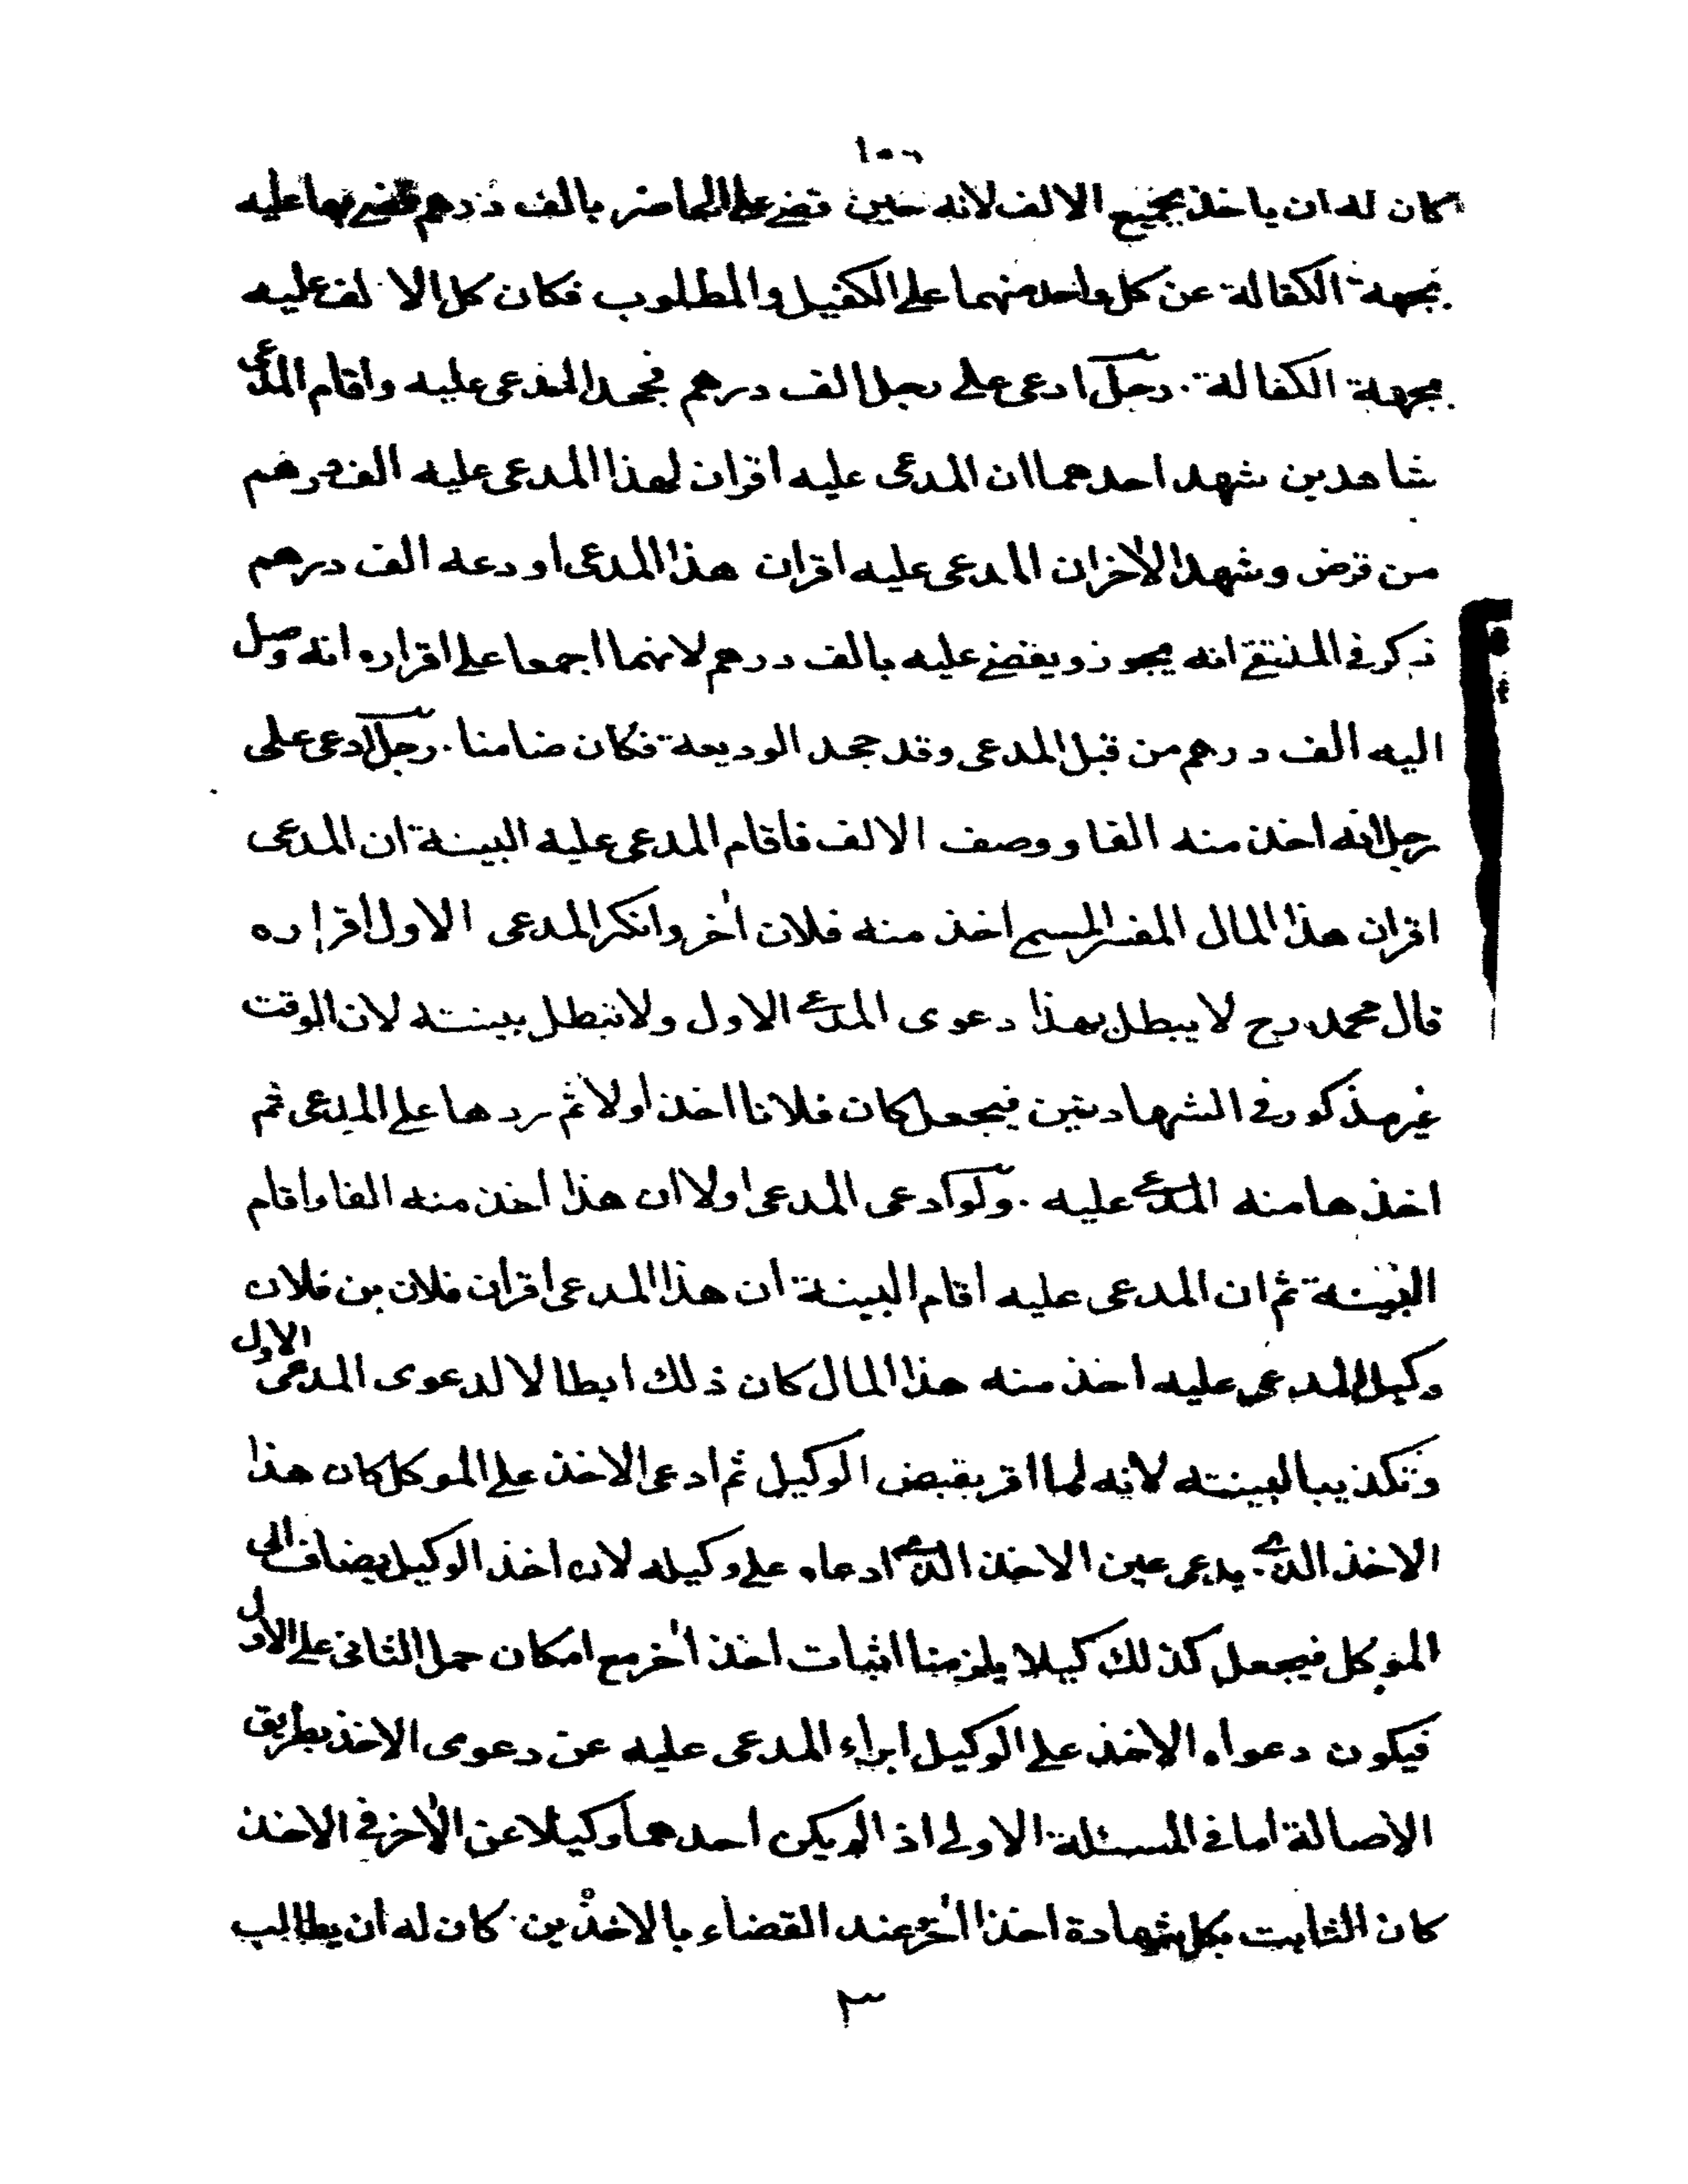 كان له ان ياخذ بجميع الالف لانه حين قضى على الحاضر بالف درهم قضى بها عليه
بجهة الكفالة عن كل واحد منهما على الكفيل والمطلوب فكان كل الالف عليه
بجهة الكفالة . رجل ادعى على رجل الف درهم فجحد المدعى عليه واقام المدعى
شاهدين شهد احدهما ان المدعى عليه اقر ان لهذا المدعى عليه الف درهم
من قرض وشهد الاخر ان المدعى عليه اقر ان هذا المدعى اودعه الف درهم
ذكر فى المنتقى انه يجوز ويقضى عليه بالف درهم لانهما اجمعا على اقراره انه وصل
اليه الف درهم من قبل المدعى وقد جحد الوديعة فكان ضامنا . رجل ادعى على
رجل انه اخذ منه الفا ووصف الالف فاقام المدعى عليه البينة ان المدعى
اقر ان هذا المال المفسر المسمى اخذ منه فلان اخر وانكر المدعى الاول اقراره
قال محمد رح لا يبطل بهذا دعوى المدعى الاول ولا تبطل بينته لان الوقت
غير مذكور فى الشهادتين فيجعل كان فلانا اخذ اولا ثم ردها على المدعى ثم
اخذها منه المدعى عليه . ولو ادعى المدعى اولا ان هذا اخذ منه الفا واقام
البينة ثم ان المدعى عليه اقام البينة ان هذا المدعى اقر ان فلان بن فلان
وكيل المدعى عليه اخذ منه هذا المال كان ذلك ابطالا لدعوى المدعى الاول
وتكذيبا لبينته لانه لما اقر بقبض الوكيل ثم ادعى الاخذ على الموكل كان هذا
الاخذ الذى يدعى عين الاخذ الذى ادعاه على وكيله لان اخذ الوكيل يضاف الى
الموكل فيجعل كذلك كيلا يلزمنا اثبات اخذ اخر مع امكان حمل الثانى على الاول
فيكون دعواه الاخذ على الوكيل ابراء المدعى عليه عن دعوى الاخذ بطريق
الاصالة اما فى المسئلة الاولى اذا لم يكن احدهما وكيلا عن الاخر فى الاخذ
كان الثابت بكل شهادة اخذا اخر عند القضاء بالاخذين كان له ان يطالب